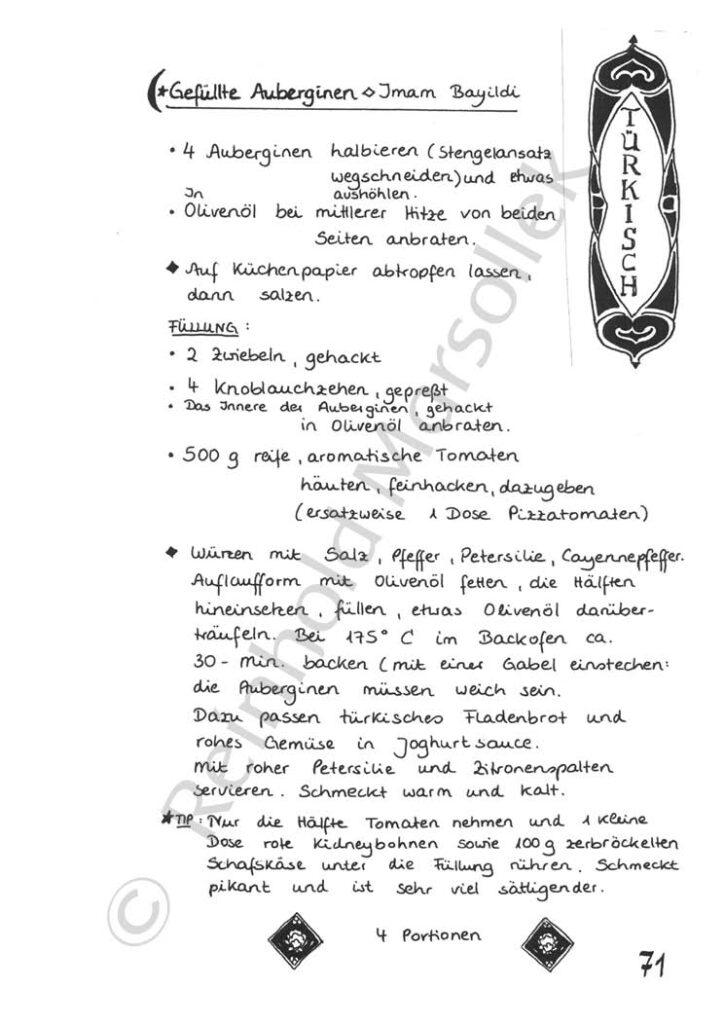 Gefüllte Auberginen ◇ Imam Bayildi
TÜRKISCH
• 4 Auberginen halbieren (Stengelansatz
wegschneiden) und etwas
aushöhlen.
In
• Olivenöl bei mittlerer Hitze von beiden
Seiten anbraten.
◆ Auf Küchenpapier abtropfen lassen,
dann salzen.
FÜLLUNG:
• 2 Zwiebeln, gehackt
• 4 Knoblauchzehen, gepreßt
• Das Innere der Auberginen, gehackt
in Olivenöl anbraten.
• 500 g reife, aromatische Tomaten
häuten, feinhacken, dazugeben
(ersatzweise 1 Dose Pizzatomaten)
◆ Würzen mit Salz, Pfeffer, Petersilie, Cayennepfeffer.
Auflaufform mit Olivenöl fetten, die Hälften
hineinsetzen, füllen, etwas Olivenöl darüber-
träufeln. Bei 175° C im Backofen ca.
30 - Min. backen (mit einer Gabel einstechen:
die Auberginen müssen weich sein.
Dazu passen türkisches Fladenbrot und
rohes Gemüse in Joghurtsauce.
mit roher Petersilie und Zitronenspalten
servieren. Schmeckt warm und kalt.
★ TIP: Nur die Hälfte Tomaten nehmen und 1 kleine
Dose rote Kidneybohnen sowie 100 g zerbröckelten
Schafskäse unter die Füllung rühren. Schmeckt
pikant und ist sehr viel sättigender.
4 Portionen
71
© Reinhold Marsollek